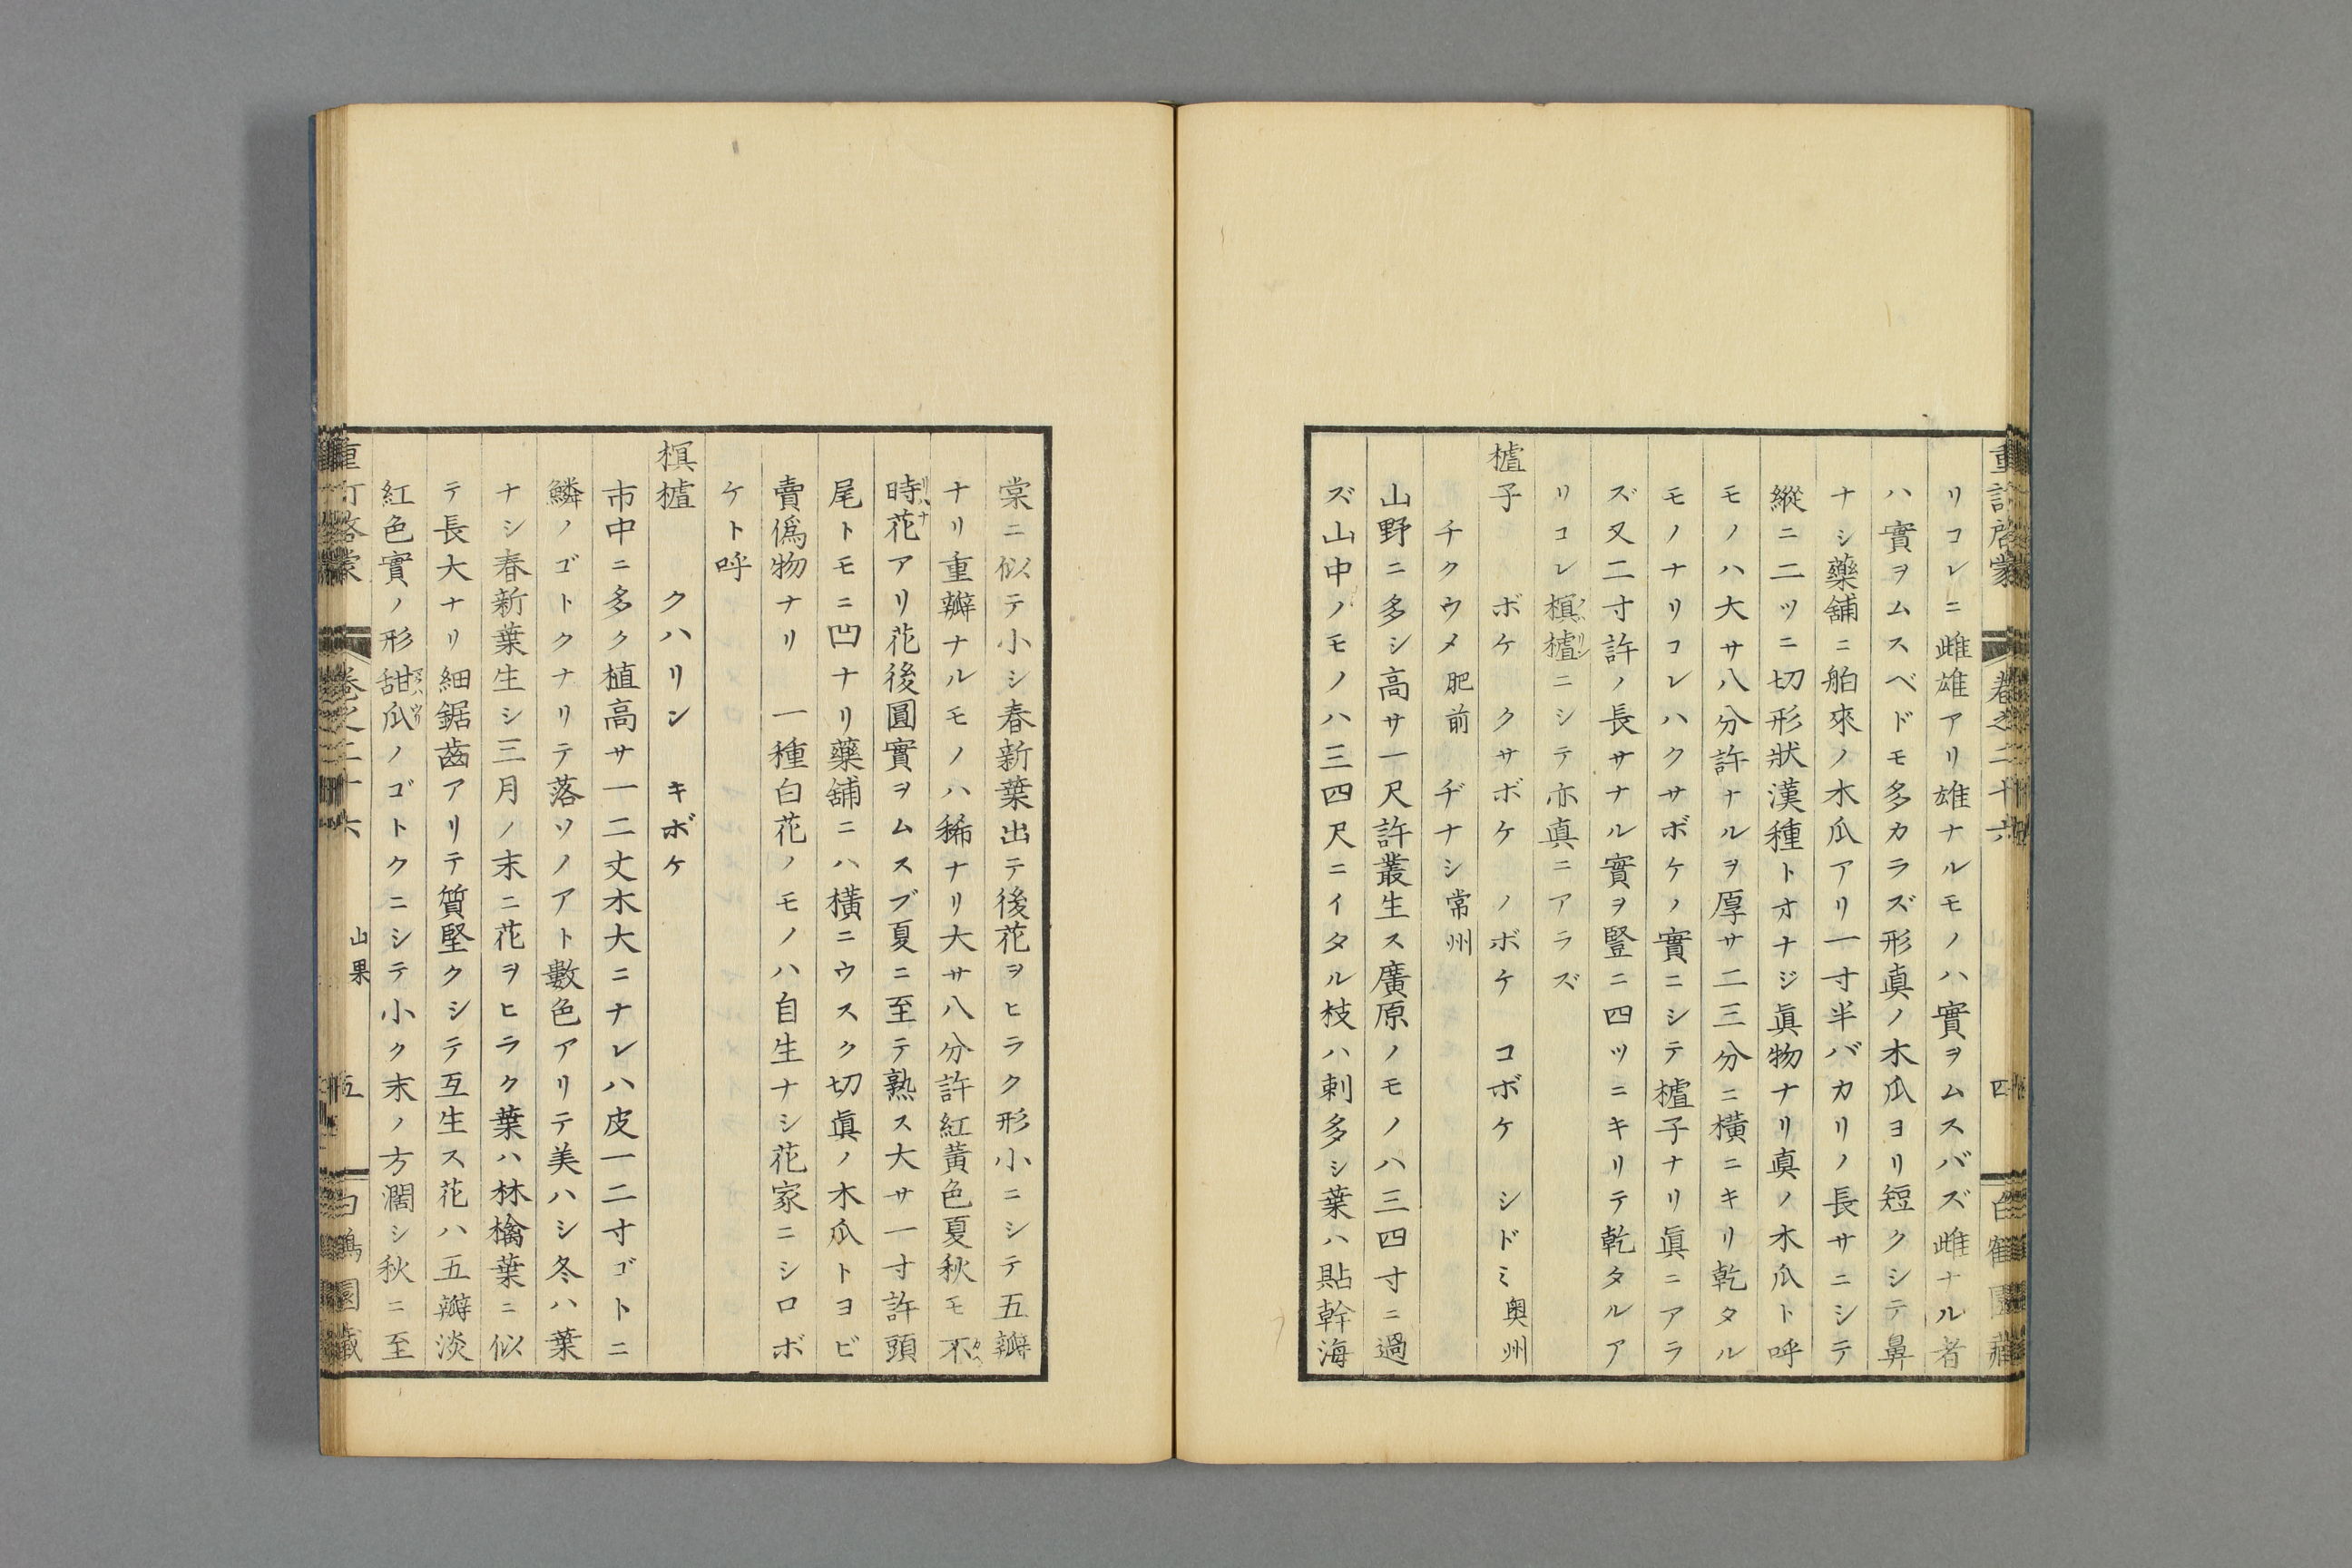 重訂啓蒙 卷之二十六 四 白鶴園藏
リコレニ雌雄アリ雄ナルモノハ實ヲムスバズ雌ナル者
ハ實ヲムスベドモ多カラズ形真ノ木瓜ヨリ短クシテ鼻
ナシ藥舗ニ舶來ノ木瓜アリ一寸半バカリノ長サニシテ
縱ニ二ツニ切形狀漢種トオナジ眞物ナリ真ノ木瓜ト呼
モノハ大サ八分許ナルヲ厚サ二三分ニ横ニキリ乾タル
モノナリコレハクサボケノ實ニシテ樝子ナリ眞ニアラ
ズ又二寸許ノ長サナル實ヲ豎ニ四ツニキリテ乾タルア
リコレ榠樝ニシテ亦真ニアラズ
樝子 ボケ クサボケ ノボケ コボケ シドミ奥州
チクウメ肥前 ヂナシ常州
山野ニ多シ高サ一尺許叢生ス廣原ノモノハ三四寸ニ過
ズ山中ノモノハ三四尺ニイタル枝ハ刺多シ葉ハ貼幹海
棠ニ似テ小シ春新葉出テ後花ヲヒラク形小ニシテ五瓣
ナリ重瓣ナルモノハ稀ナリ大サ八分許紅黃色夏秋モ不
時花アリ花後圓實ヲムスブ夏ニ至テ熟ス大サ一寸許頭
尾トモニ凹ナリ藥舗ニハ横ニウスク切眞ノ木瓜トヨビ
賣僞物ナリ 一種白花ノモノハ自生ナシ花家ニシロボ
ケト呼
榠樝 クハリン キボケ
市中ニ多ク植高サ一二丈木大ニナレハ皮一二寸ゴトニ
鱗ノゴトクナリテ落ソノアト數色アリテ美ハシ冬ハ葉
ナシ春新葉生シ三月ノ末ニ花ヲヒラク葉ハ林檎葉ニ似
テ長大ナリ細鋸齒アリテ質堅クシテ互生ス花ハ五瓣淡
紅色實ノ形甜瓜ノゴトクニシテ小ク末ノ方濶シ秋ニ至
重訂啓蒙 卷之二十六 山果 五 白鶴園藏